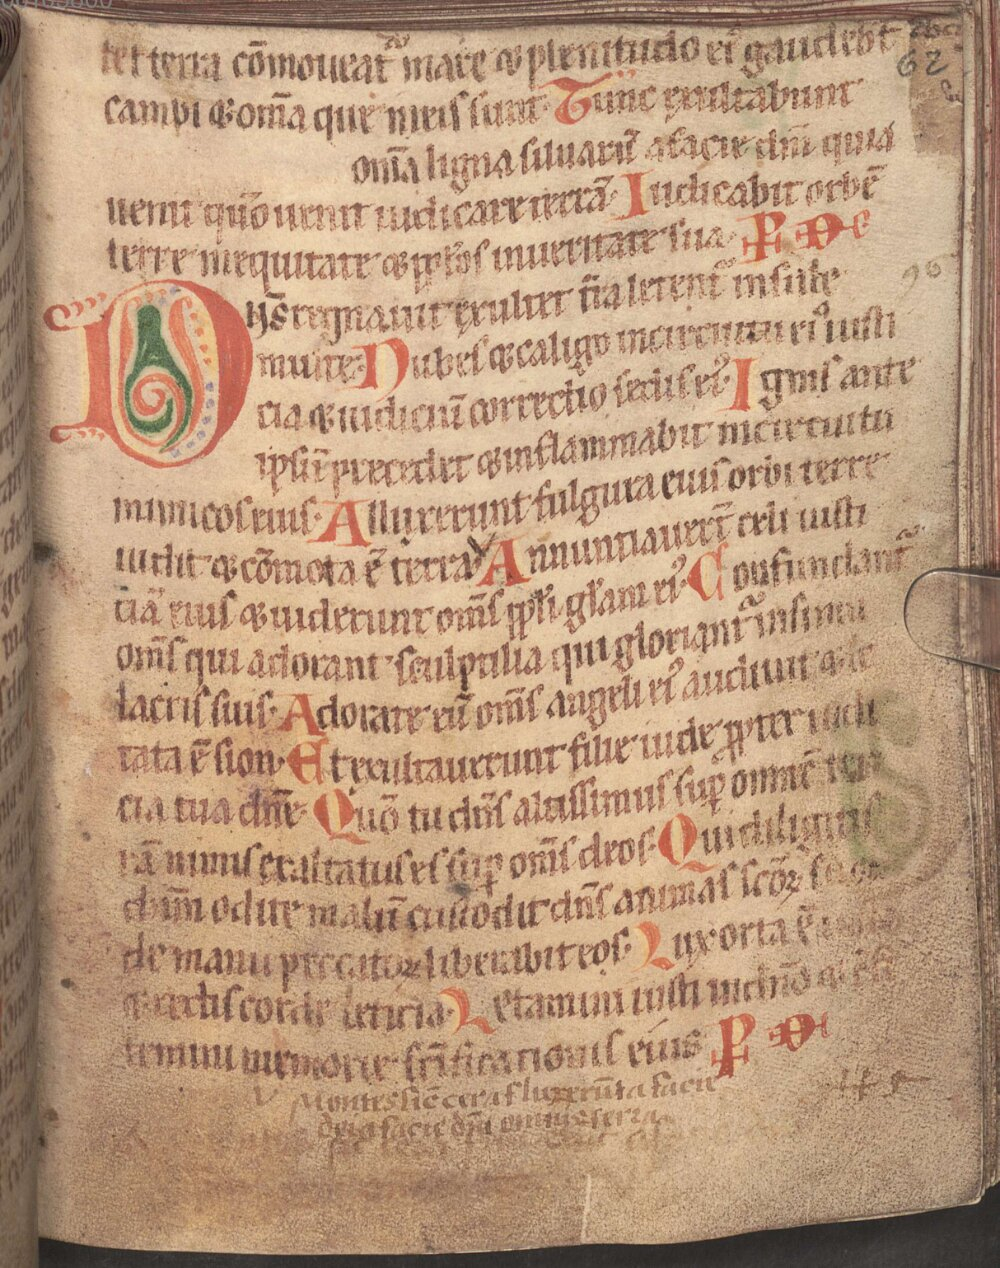 tet terra cōmoueat᷑ mare ⁊ plenitudo ei᷒ gaudebt
campi ⁊ om̄a que in eis sunt· Tunc exultabunt
om̄a ligna siluarū a facie dn̄i quia
uenit quō uenit iudicare terrā· Iudicabit orbē
terre in equitate ⁊ pplos in ueritate sua·
Dn̄s regnauit exultet t̄ra letent᷑ insule
multe· Nubes ⁊ caligo in circuitu ei᷒ iusti
cia ⁊ iudiciū correctio sedis ei᷒· Ignis ante
ipsū precedet ⁊ inflammabit in circuitu
inimicos eius· Alluxerunt fulgura eius orbi terre
uidit ⁊ cōmota ē terra· Annuntiauerūt celi iusti
ciā eius ⁊ uiderunt om̄s ppli gl̄am ei᷒· Confundant᷑
om̄s qui adorant sculptilia qui gloriant᷑ in simu
lacris suis· Adorate eū om̄s angeli ei᷒ audiuit ⁊ le
tata ē sion· Et exultauerunt filie iude ꝓpter iudi
cia tua dn̄e· Quō tu dn̄s altissimus sup omnē ter
rā nimis exaltatus es sup om̄s deos· Qui diligitis
dn̄m odite malū custodit dn̄s animas sc̄oꝝ
de manu peccatoꝝ liberabit eos· Lux orta ē
⁊ rectis corde leticia· Letamini iusti in dn̄o
temini memorie sc̄ificationis eius
Montes sic cera fluxerūt a facie
dn̄i a facie dn̄i omnis terra
62
96